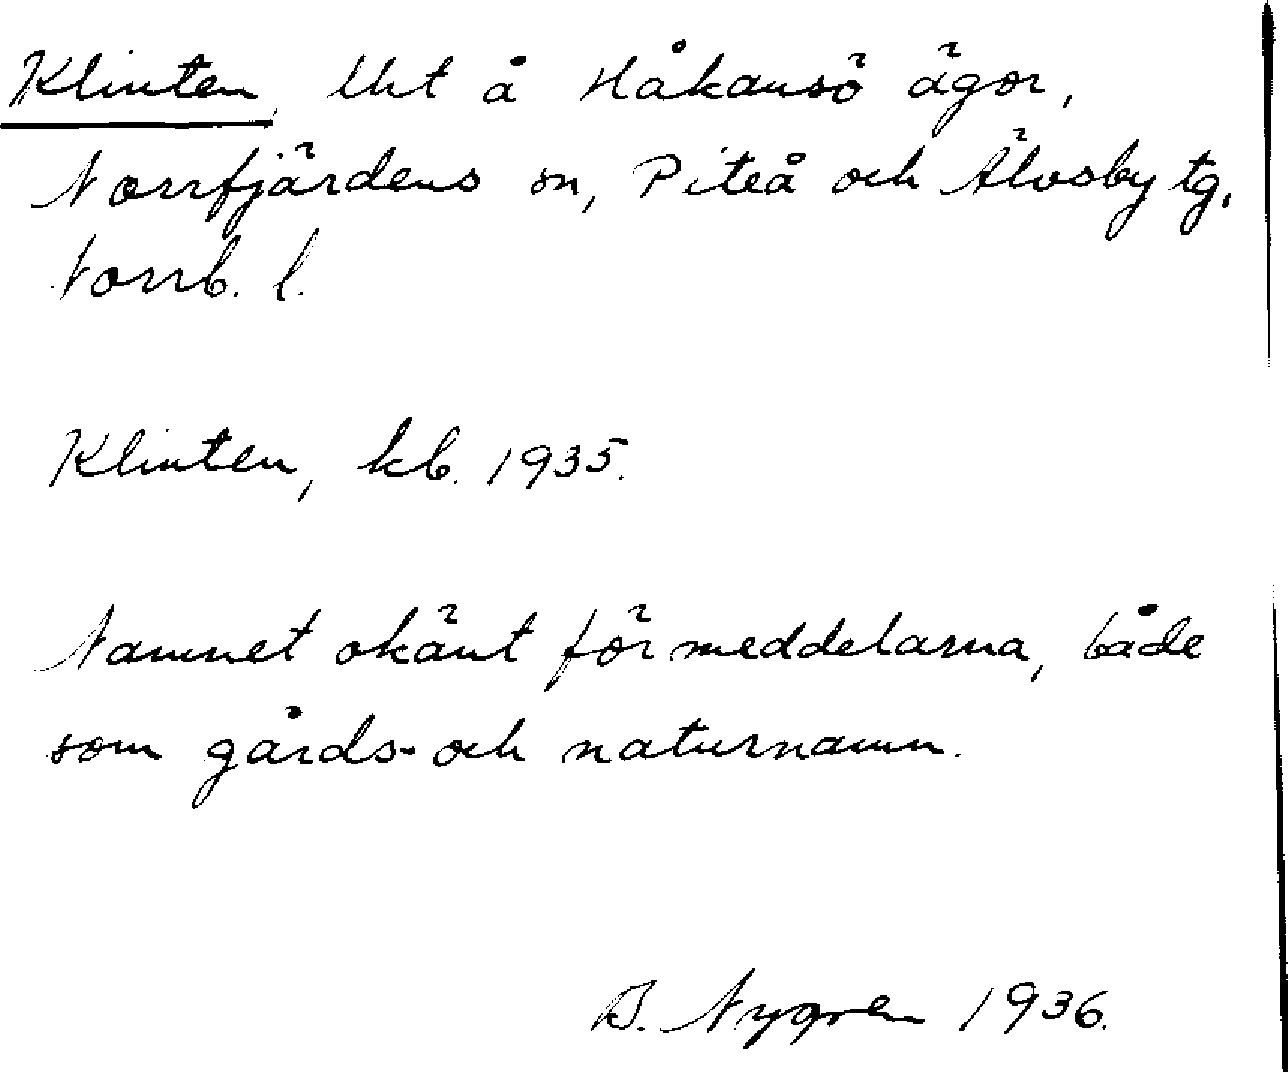 Klinten, lht å Håkansö ägor,
Norrfjärdens sn, Piteå och Älvsby tg,
Norrb. l.
Klinten, kb. 1935.
Namnet okänt för meddelarna, både
som gårds- och naturnamn.
B. Nygren 1936.